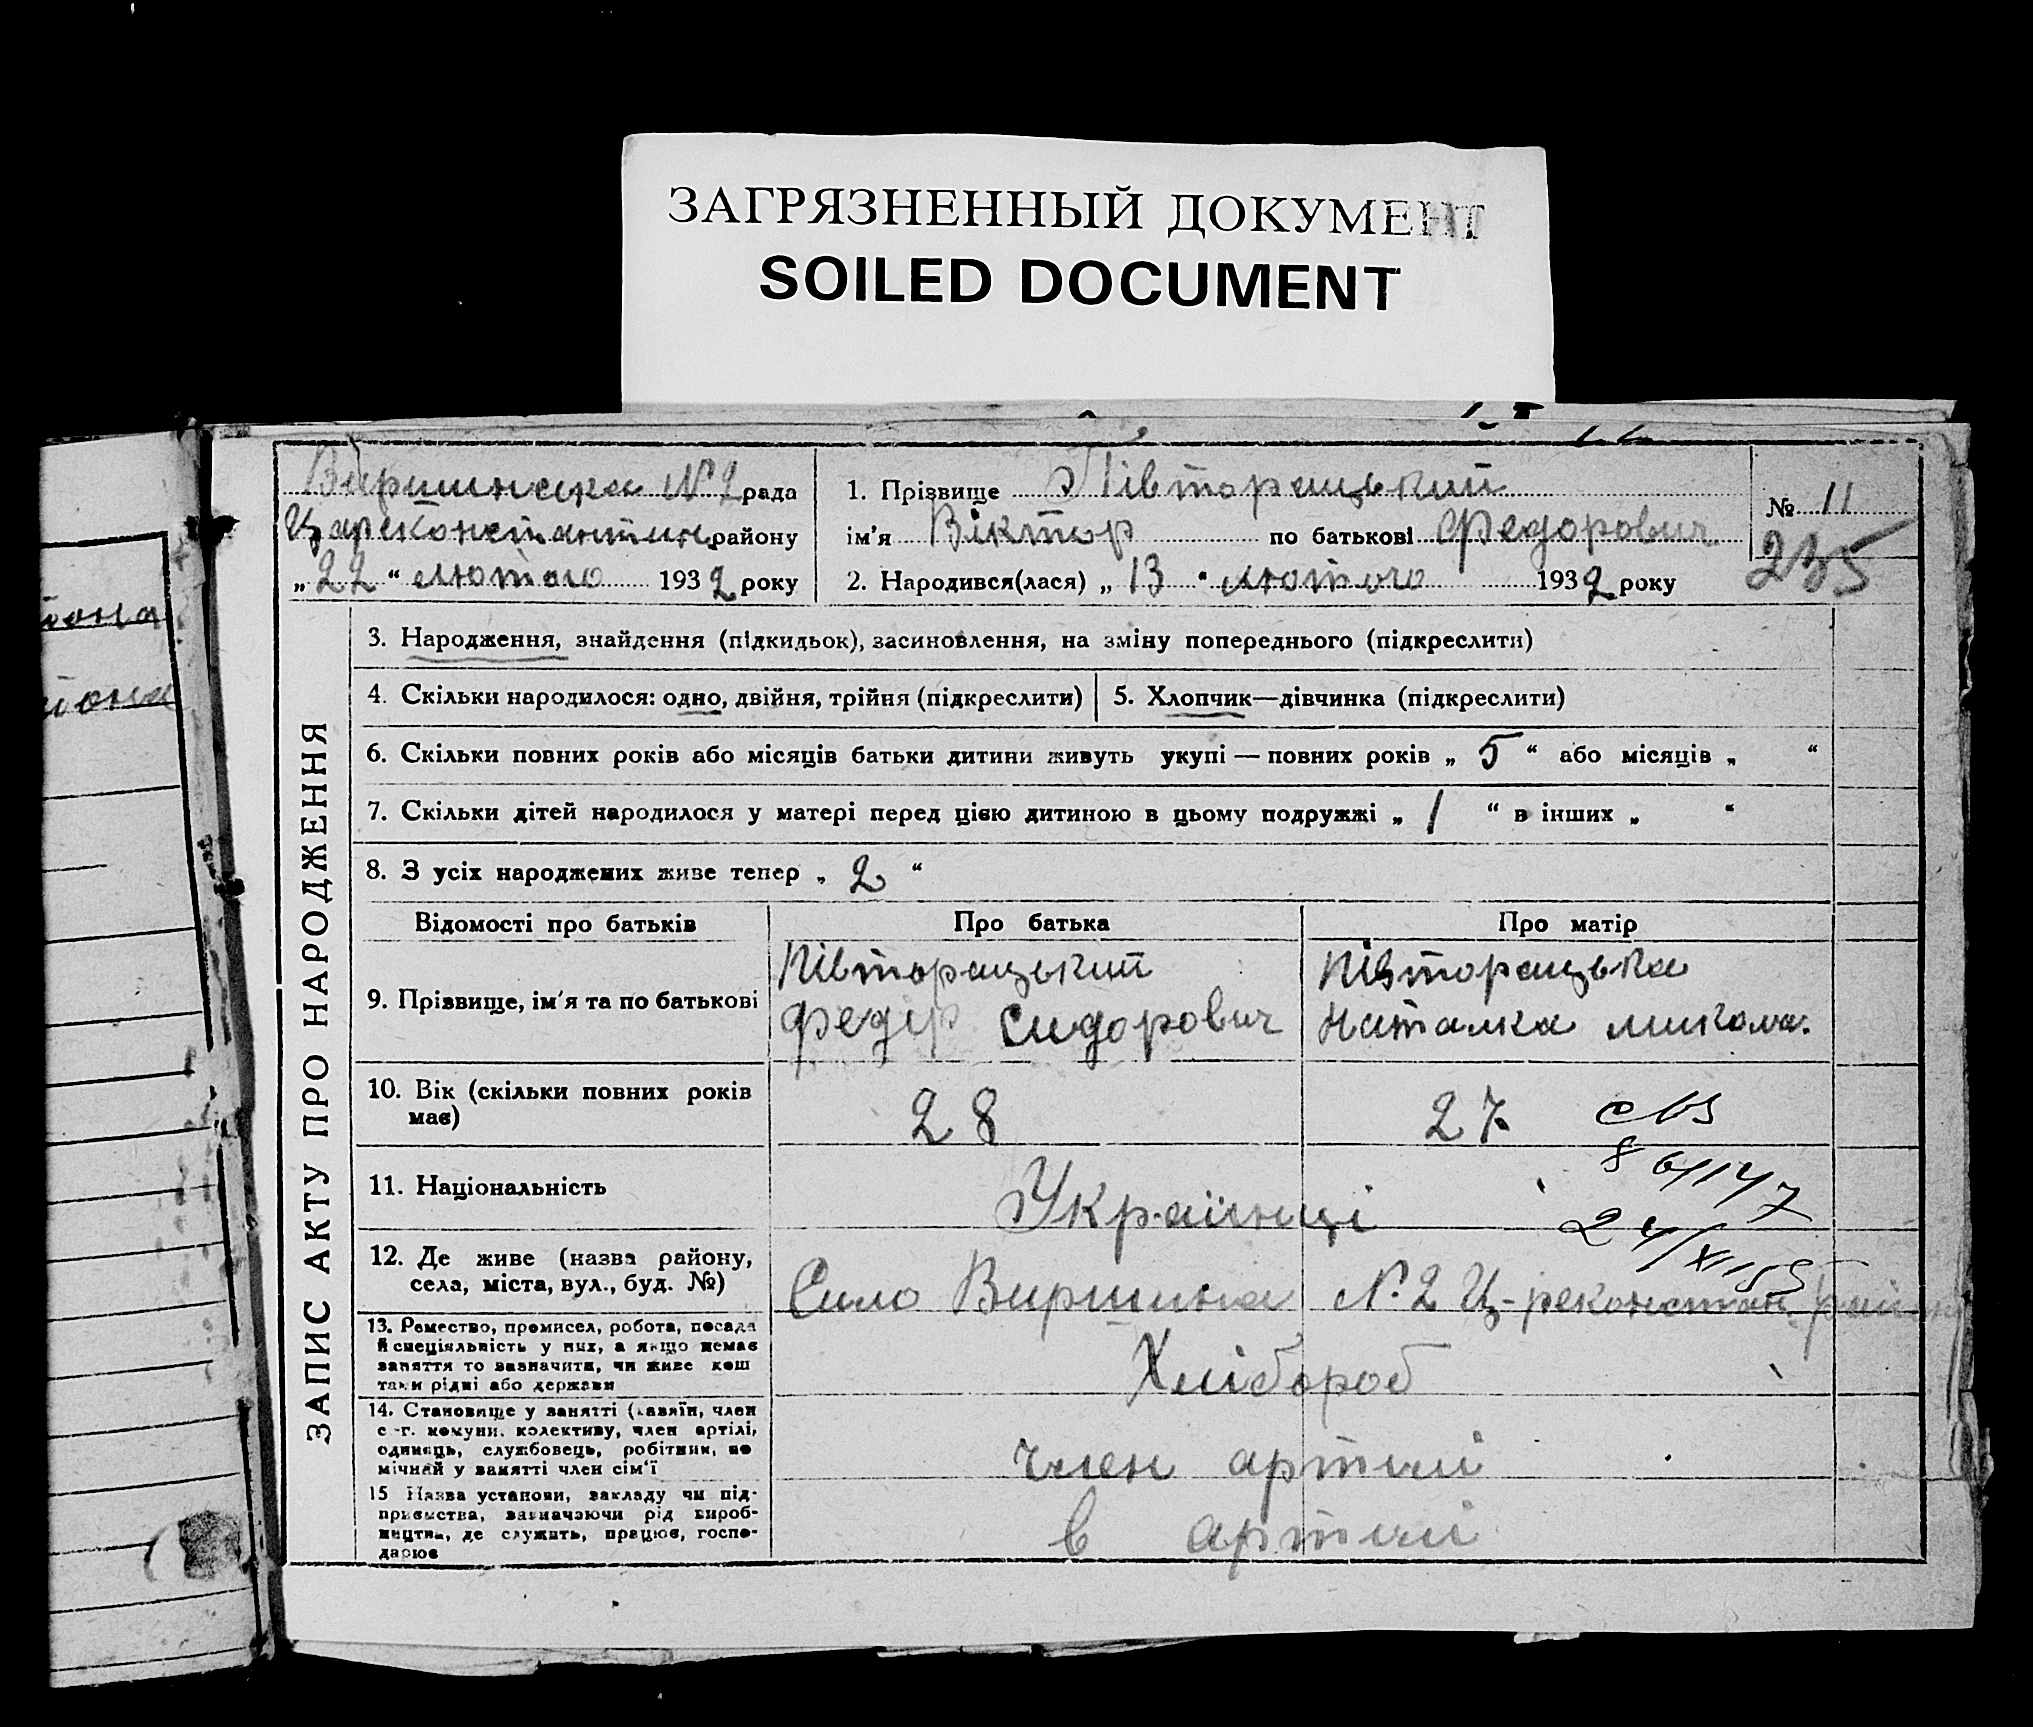 ЗАГРЯЗНЕННЫЙ ДОКУМЕНТ
SOILED DOCUMENT
Виришинська № 2 рада
Царекостянтин. району
„22“ лютого 1932 року
1. Прізвище Півторацький
ім'я Віктор по батькові Федорович
2. Народився(лася) „13“ лютого 1932 року
№ 11
235
ЗАПИС АКТУ ПРО НАРОДЖЕННЯ
3. Народження, знайдення (підкидьок), засиновлення, на зміну попереднього (підкреслити)
4. Скільки народилося: одно, двійня, трійня (підкреслити)
5. Хлопчик—дівчинка (підкреслити)
6. Скільки повних років або місяців батьки дитини живуть укупі — повних років „5“ або місяців „ “
7. Скільки дітей народилося у матері перед цією дитиною в цьому подружжі „1“ в інших „ “
8. З усіх народжених живе тепер „2“
Відомості про батьків
Про батька
Про матір
9. Прізвище, ім'я та по батькові
Півторацький
Федір Сидорович
Півторацька
Наталка Микола.
10. Вік (скільки повних років
має)
28
27
11. Національність
Українці
24/XII 55
12. Де живе (назва району,
села, міста, вул., буд. №)
Село Виришина № 2 Ц-реконстан. район
13. Ремество, промисел, робота, посада
й спеціяльність у них, а якщо немає
заняття то зазначити, чи живе кош
таки рідні або держави
Хлібороб
14. Становище у занятті (хазяїн, член
с.-г. комуни, колективу, член артілі,
одинець, службовець, робітник, по
мічний у занятті член сім'ї
член артилі
15 Назва установи, закладу чи під-
приємства, зазначаючи рід вироб-
ництва, де служить, працює, госпо-
дарює
в артилі